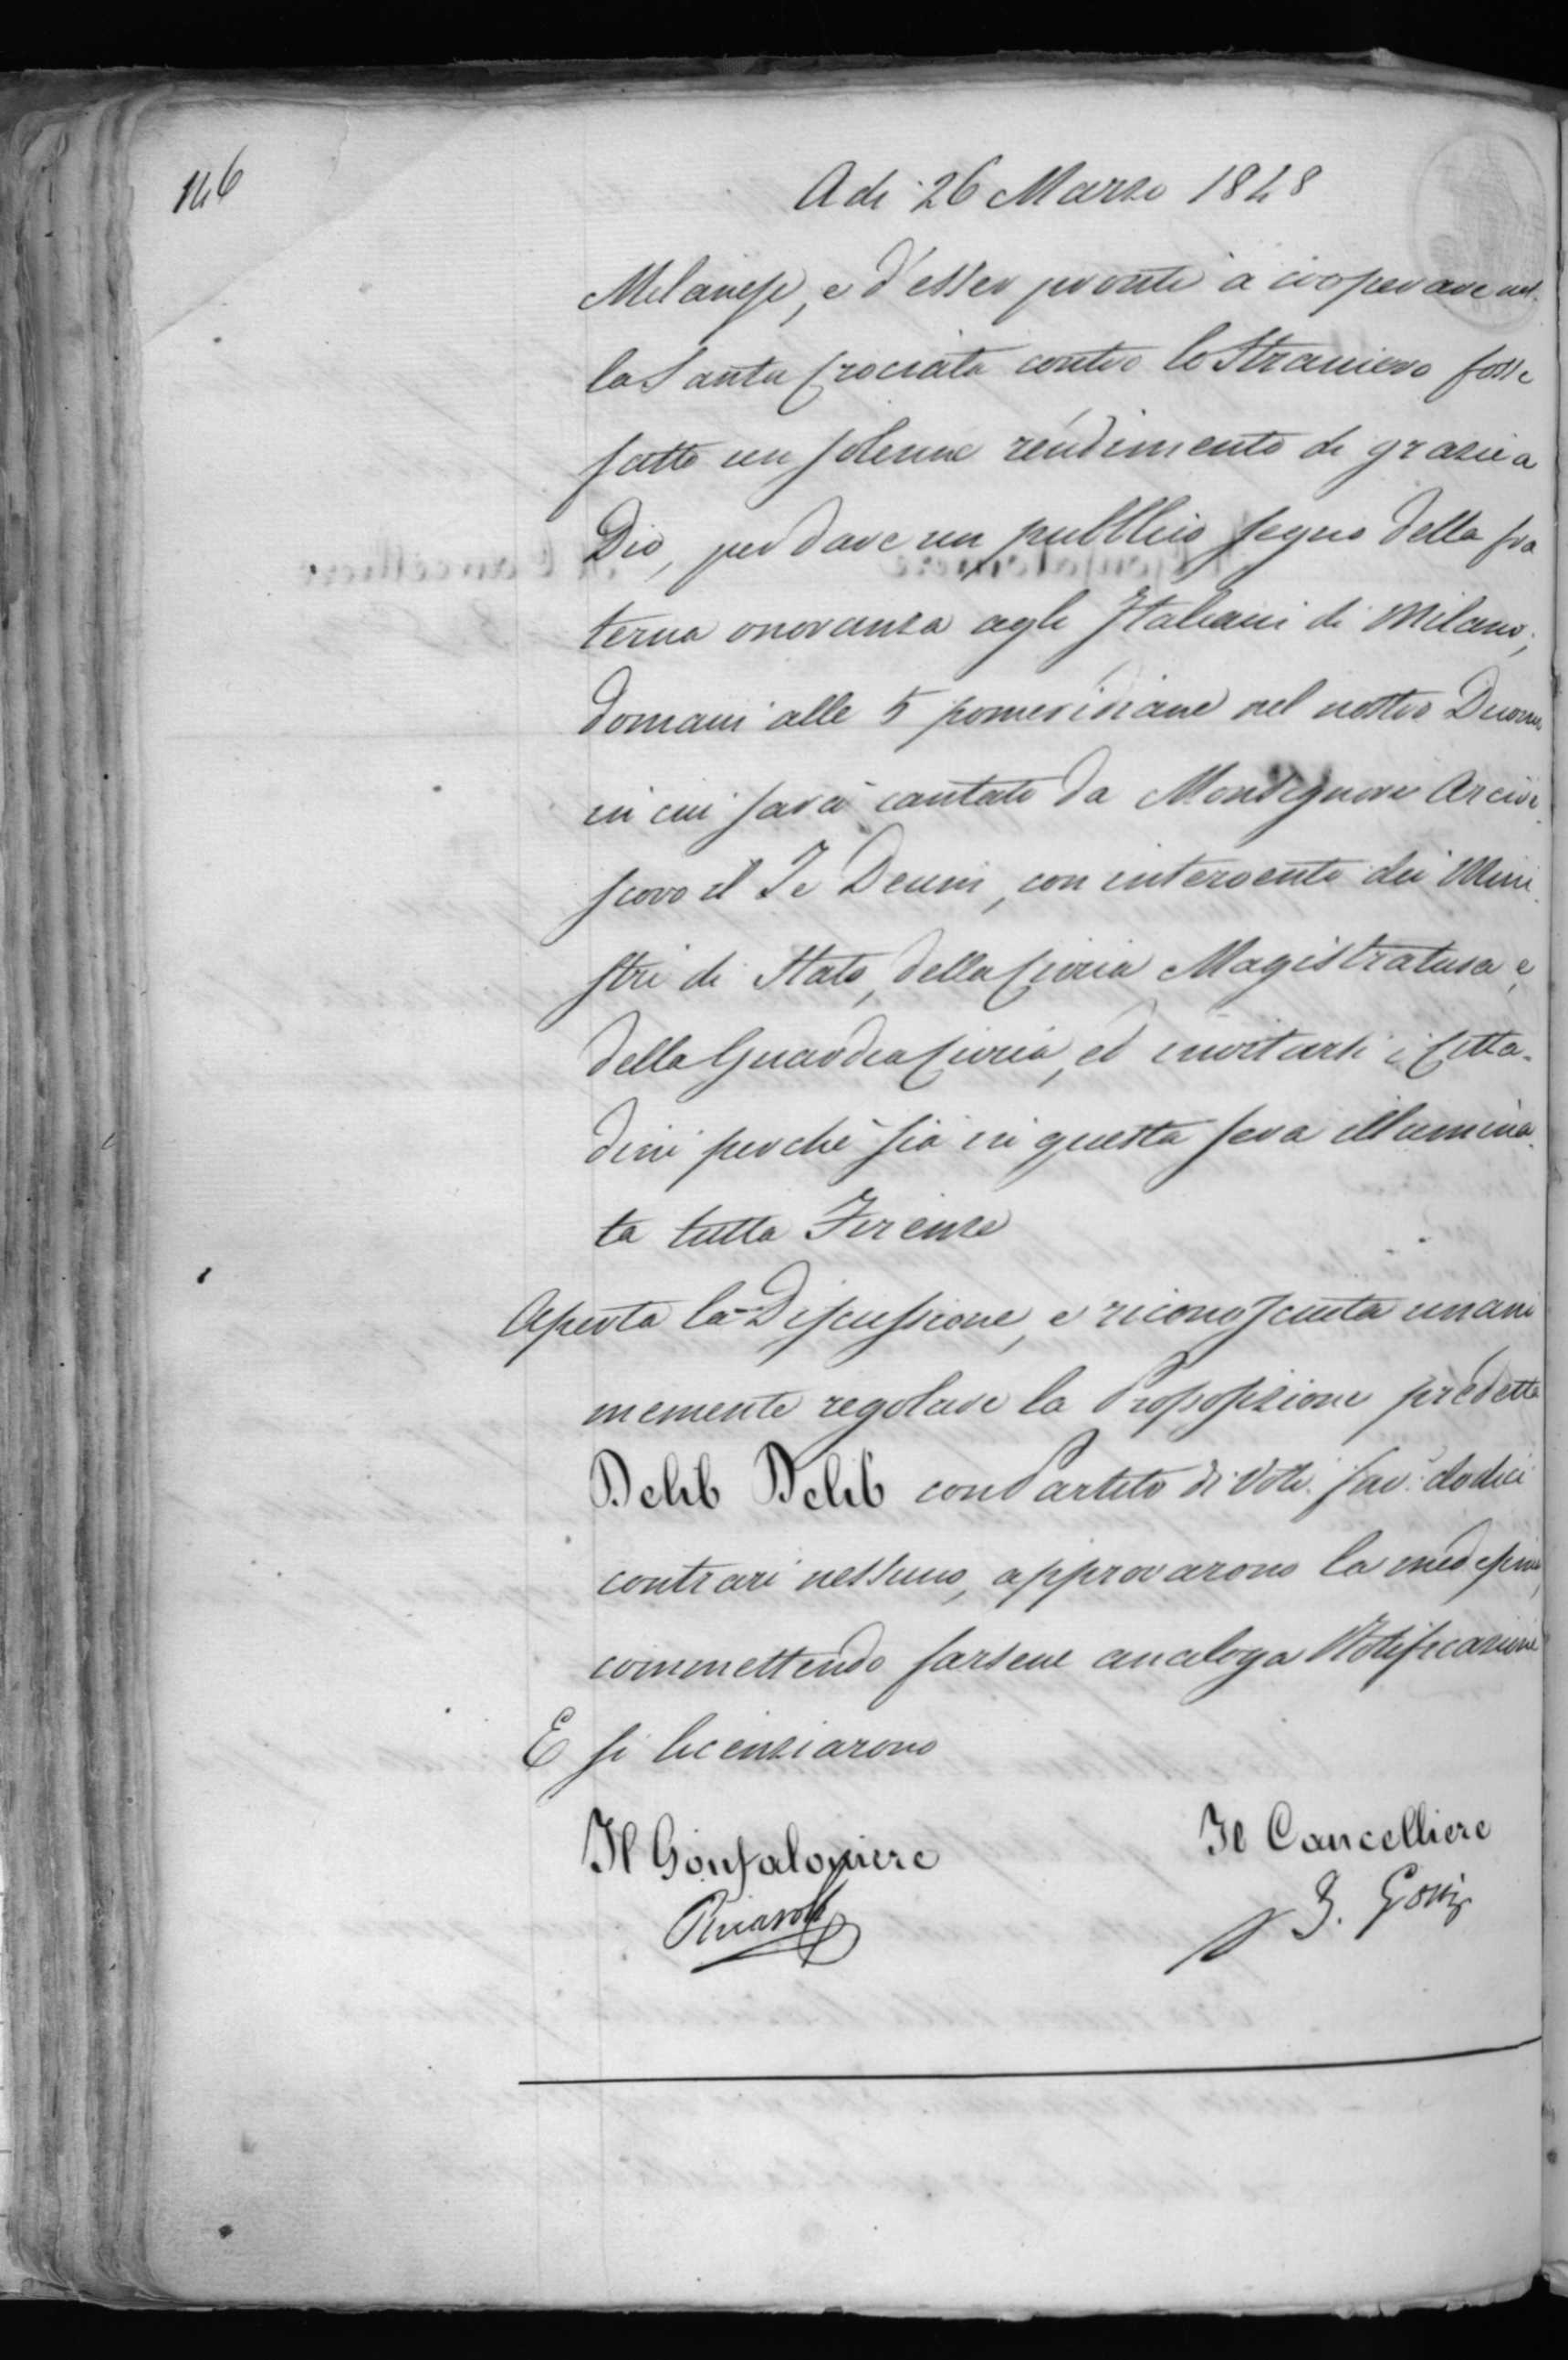 146
Adi 26 Marzo 1848
Milanese, e d'esser pronti a cooperare nel-
la Santa Crociata contro lo Straniero fosse
fatto un solenne rendimento di grazie a
Dio, per dare un pubblico segno della fra
terna onoranza agli Italiani di Milano,
domani alle 5 pomeridiane nel nostro Duomo
in cui sarà cantato da Monsignore Arcive
scovo il Te Deum, con intervento dei Mini
stri di Stato, della Civica Magistratura, e
della Guardia Civica, ed invitarsi i Citta-
dini perchè sia in questa sera illumina
ta tutta Firenze
Aperta la Discussione, e riconosciuta unani
memente regolare la Proposizione predetta
Delib Delib con Partito di Voti fav: dodici
contrari nessuno, approvarono la medesima,
commettendo farsene analoga Notificazione
E si licenziarono
Il Gonfaloniere
Il Cancelliere
Ricasoli